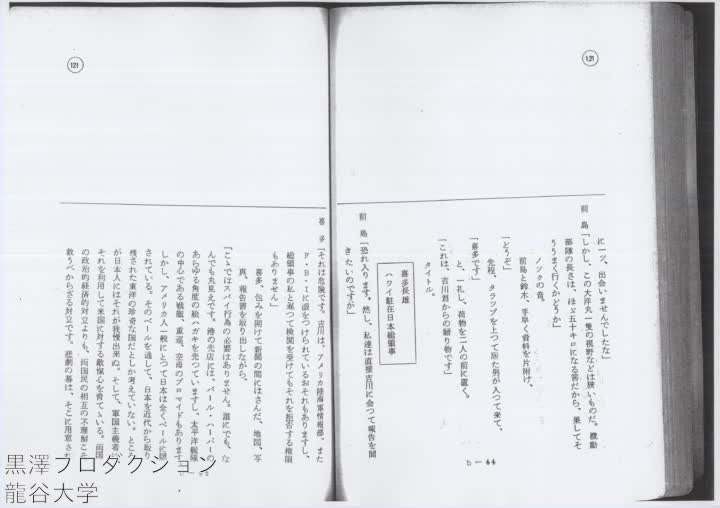 121
に一ツ、出会いませんでしたな」
前島「しかし、この大洋丸一隻の視野などは狭いものだ。機動
部隊の長さは、ほゞ五十キロになる筈だから、果してそ
ううまく行くかどうか」
ノックの音。
前島と鈴木、手早く資料を片附け、
「どうぞ」
先程、タラップを上って居た男が入って来て、
「喜多です」
と、一礼し、荷物を二人の前に置く。
「これは、吉川君からの贈り物です」
タイトル。
喜多長雄
ハワイ駐在日本総領事
前島「恐れ入ります。然し、私達は直接吉川に会って報告を聞
きたいのですが」
b—44
121
喜多「それは危険です。吉川は、アメリカ陸海軍情報部、また
F・B・Iに眼をつけられているおそれもありますし、
総領事の私と違って検閲を受けてもそれを拒否する権限
もありません」
喜多、包みを開けて新聞の間にはさんだ、地図、写
真、報告書を取り出しながら、
「こゝではスパイ行為の必要はありません。誰にでも、な
んでも丸見えです。港の売店には、パール・ハーバーの
あらゆる角度の絵ハガキを売っていますし、太平洋艦隊
の中心である戦艦、重巡、空母のブロマイドもあります
しかし、アメリカ人一般にとって日本は全くベールに隠
されている。そのベールを通して、日本を近代から取り
残された東洋の珍奇な国だとしか考えていない。ところ
が日本人にはそれが我慢出来ぬ。そして、軍国主義者は
それを利用して米国に対する敵愾心を育てゝいる。両国
の政治的経済的対立よりも、両国民の相互の不理解こそ
救うべからざる対立です。悲劇の幕は、そこに用意され
黒澤プロダクション
龍谷大学